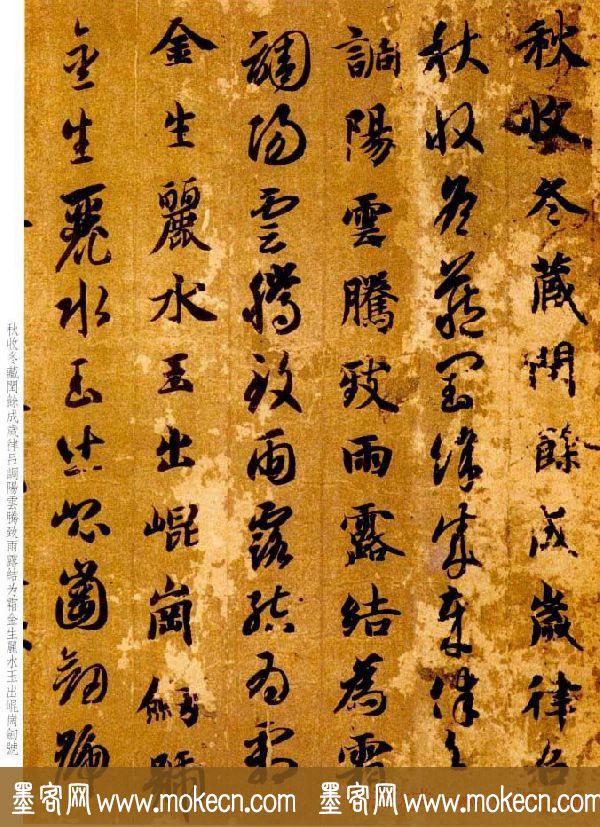 秋收冬藏閏餘成歲律呂
秋收冬藏閏餘成歲律呂
調陽雲騰致雨露結為霜
調陽雲騰致雨露結為霜
金生麗水玉出崐崗劒號
金生麗水玉出崐崗劒號
秋收冬藏閏餘成歲律呂調陽雲騰致雨露結为霜金生麗水玉出崐崗劒號
墨客网 www.mokecn.com 墨客网 www.mokecn.com